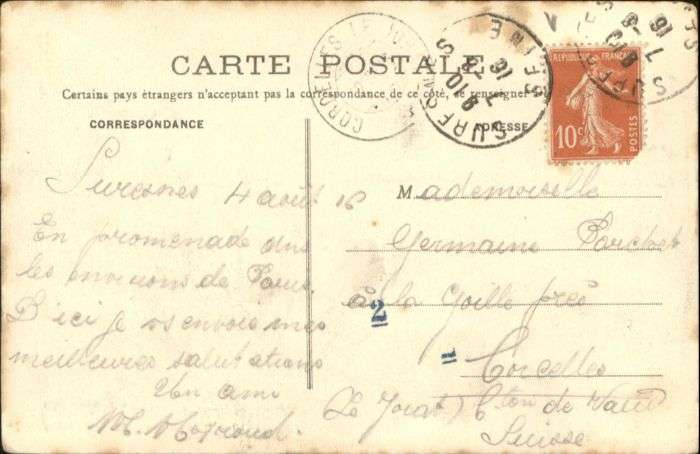 CARTE POSTALE
Certains pays étrangers n'acceptant pas la correspondance de ce côté, se renseigner
CORRESPONDANCE
ADRESSE
CORCELLES LE JO
SURESNES
SEINE
7 -8
16
REPUBLIQUE FRANÇAISE
10c
POSTES
Suresnes 4 août 16
En promenade dans
les environs de Paris.
D'ici je vs envoie mes
meilleures salutations
Un ami
M.
Mademoiselle
Germaine
à la Goille près
Corcelles
(Le Jorat) Cton de Vaud
Suisse
2
1